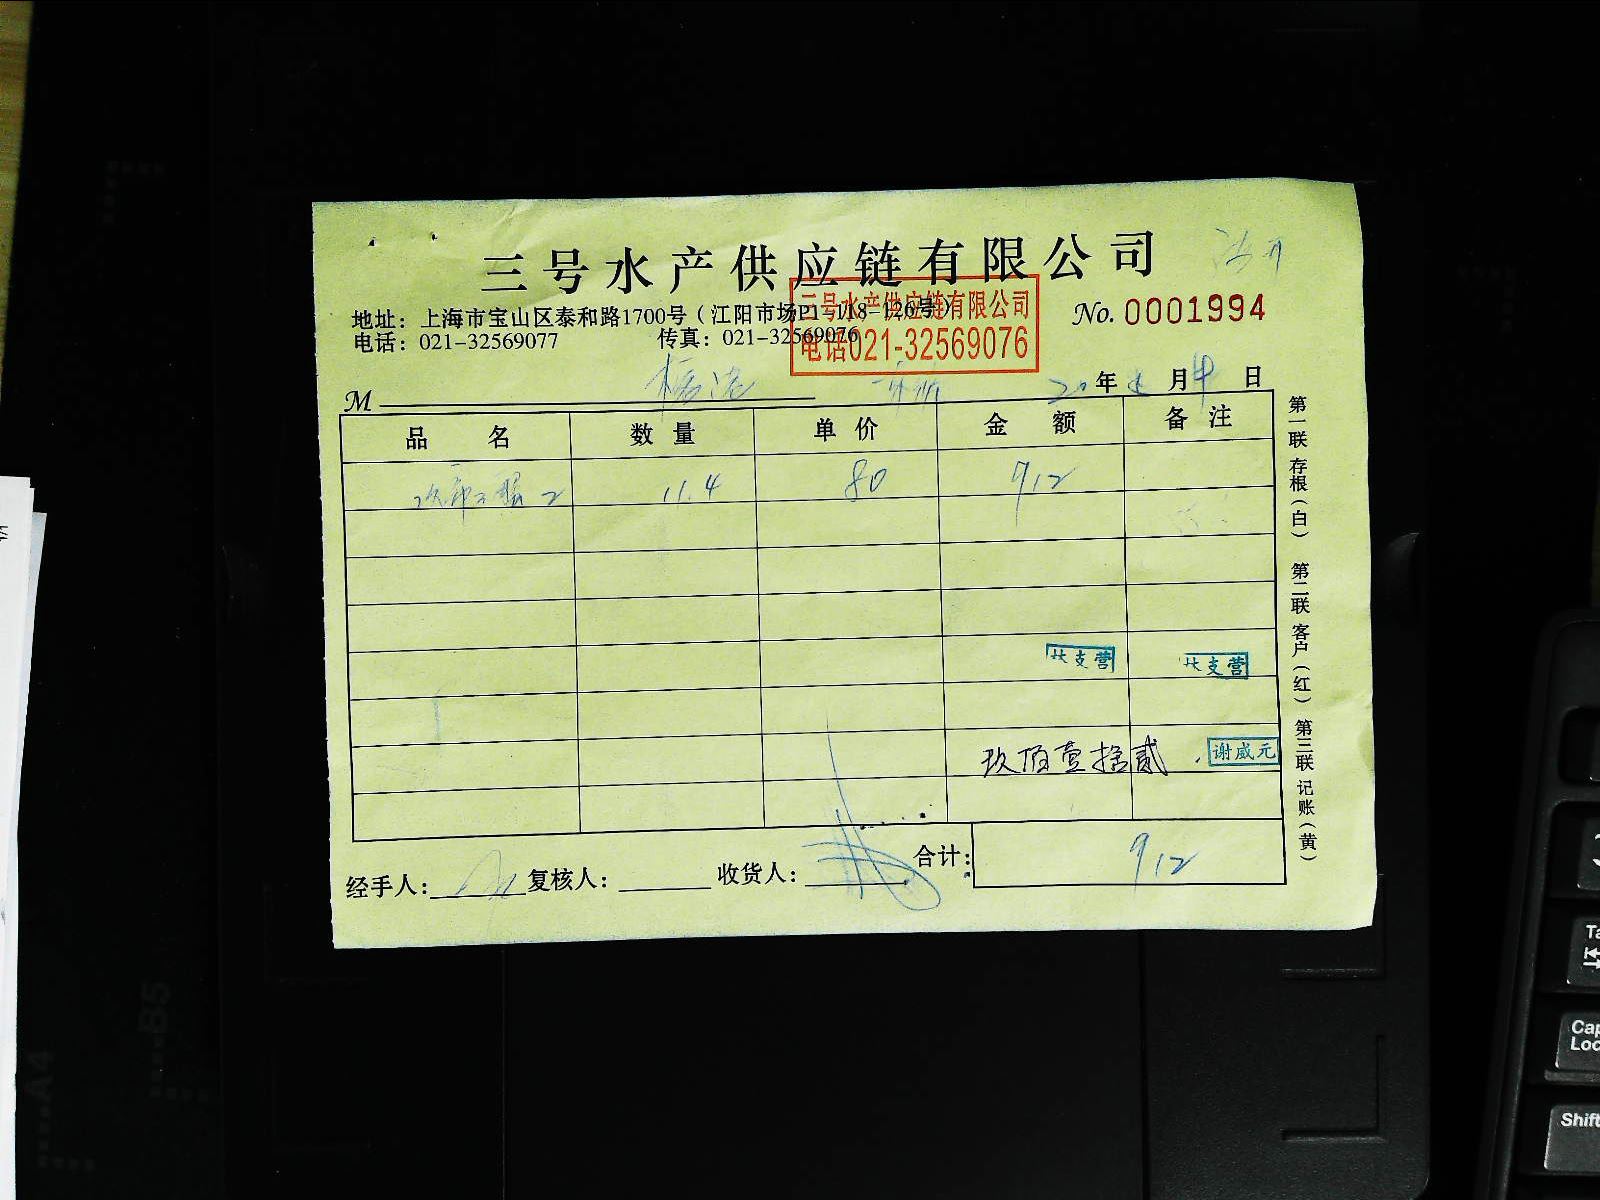 三号水产供应链有限公司
地址：上海市宝山区泰和路1700号（江阳市场P1-118-126号）
No. 0001994
电话：021-32569077 传真：021-32569076
三号水产供应链有限公司
电话021-32569076
M
20年 月 日
品名 数量 单价 金额 备注
11.4 80 912
支营 支营
玖佰壹拾贰
谢威元
合计： 912
经手人： 复核人： 收货人：
第一联 存根（白） 第二联 客户（红） 第三联 记账（黄）
A4
B5
Cap
Loc
Shift